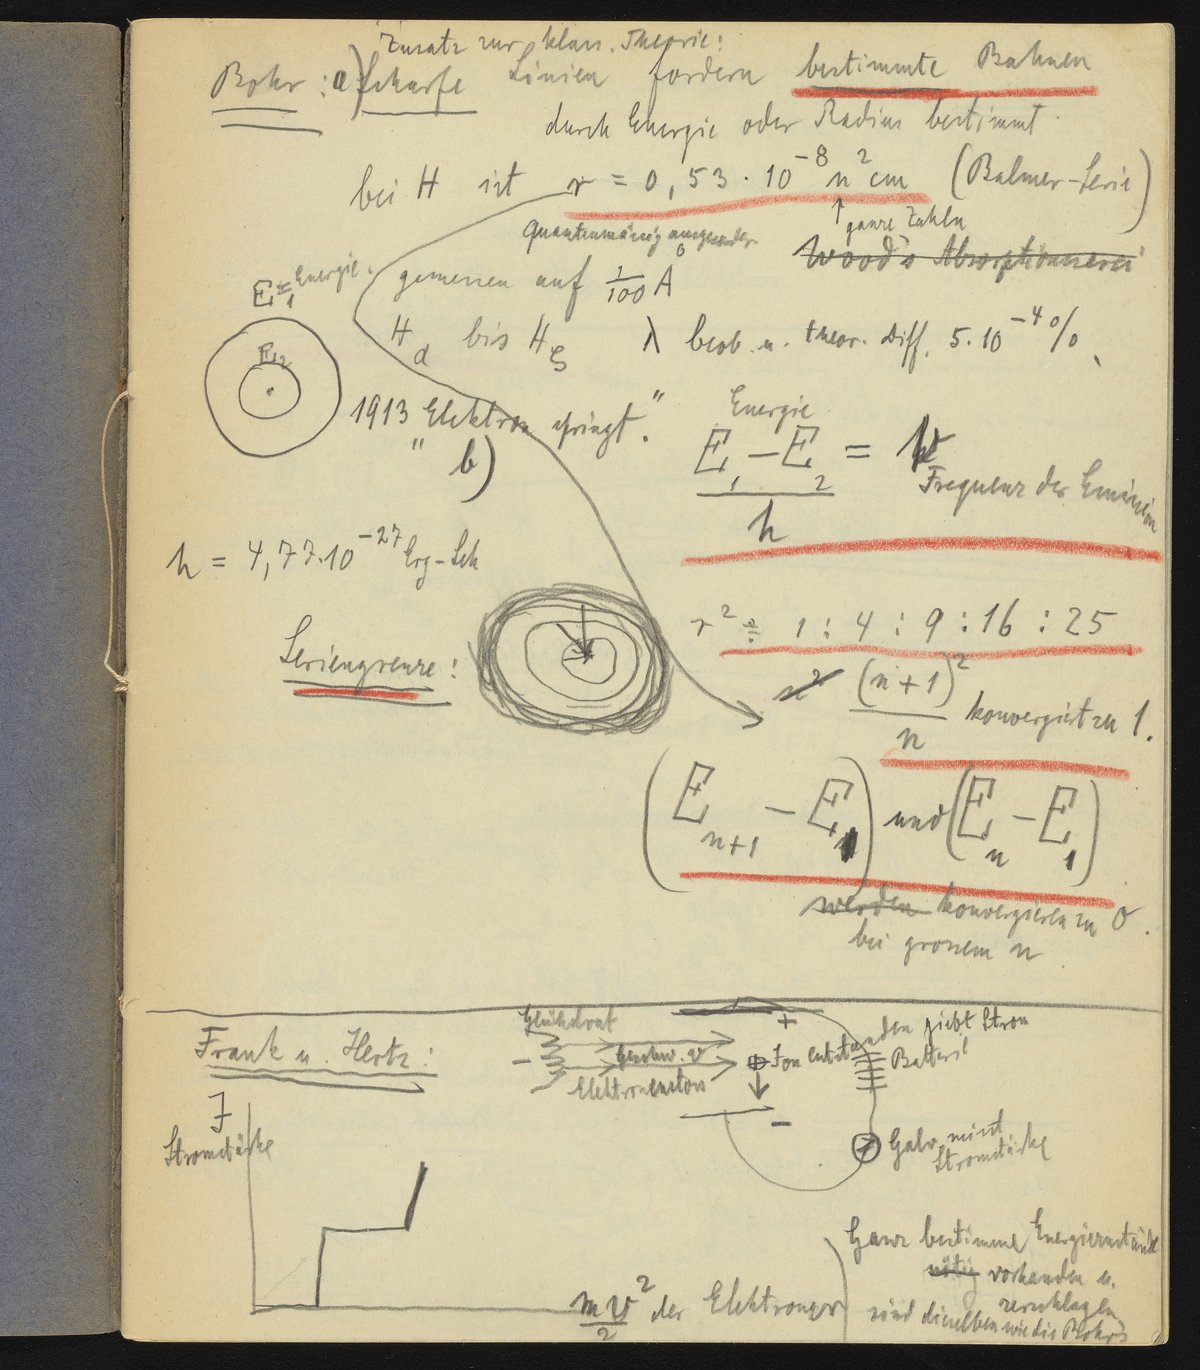 Zusatz zur klass. Theorie:
Bohr: a) scharfe Linien fordern bestimmte Bahnen
durch Energie oder Radius bestimmt
bei H ist r = 0,53 · 10⁻⁸ n² cm (Balmer-Serie)
↑ ganze Zahlen
Quantenmässig
Wood's Absorptionsserie
E₁ = Energie
gemessen auf 1/100 Å
E₂
H α bis H ξ λ beob. u. theor. Diff. 5 · 10⁻⁴ %
1913 "Elektron springt."
b)
Energie
(E₁ − E₂)/h = ν
Frequenz der Emission
h = 4,77 · 10⁻²⁷ Erg-Sek
r² ÷ 1 : 4 : 9 : 16 : 25
Seriengrenze:
n² (n+1)²/n konvergiert zu 1.
(Eₙ₊₁ − Eₙ) und (Eₙ − E₁)
werden konvergieren zu 0.
bei grossem n
Frank u. Hertz:
Glühdrat
+
Ion entstanden giebt Strom
− Geschw. v
⊕
Batterie
Elektronenstoss
−
Galv. misst
Stromstärke
J
Stromstärke
mv²/2 der Elektronen
Ganz bestimme Energiezustände
nötig vorhanden u.
zerschlagen
sind dieselben wie die Bohr's